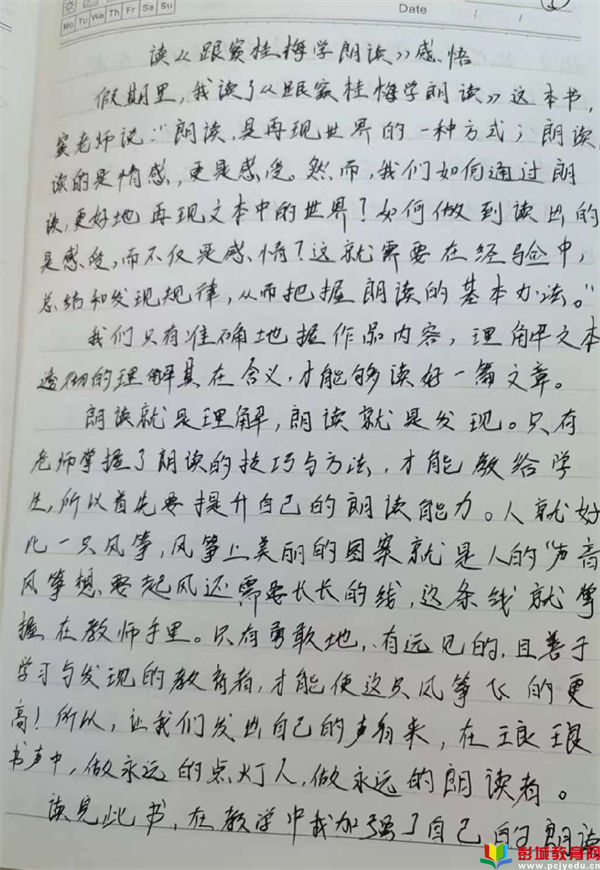 Mo Tu We Th Fr Sa Su
Date / /
读《跟窦桂梅学朗读》感悟
假期里,我读了《跟窦桂梅学朗读》这本书,
窦老师说:“朗读,是再现世界的一种方式;朗读,
读的是情感,更是感受。然而,我们如何通过朗
读,更好地再现文本中的世界?如何做到读出的
是感受,而不仅是感情?这就需要在经验中,
总结和发现规律,从而把握朗读的基本办法。”
我们只有准确地握作品内容,理解文本
透彻的理解其在含义,才能够读好一篇文章。
朗读就是理解,朗读就是发现。只有
老师掌握了朗读的技巧与方法,才能教给学
生,所以首先要提升自己的朗读能力。人就好
比一只风筝,风筝上美丽的图案就是人的“声音
风筝想要起风还需要长长的线,这条线就掌
握在教师手里。只有勇敢地,有远见的,且善于
学习与发现的教育者,才能使这只风筝飞的更
高!所以,让我们发出自己的声音来,在琅琅
书声中,做永远的点灯人,做永远的朗读者。
读完此书,在教学中我加强了自己的朗读
彭城教育网
www.pcjyedu.cn